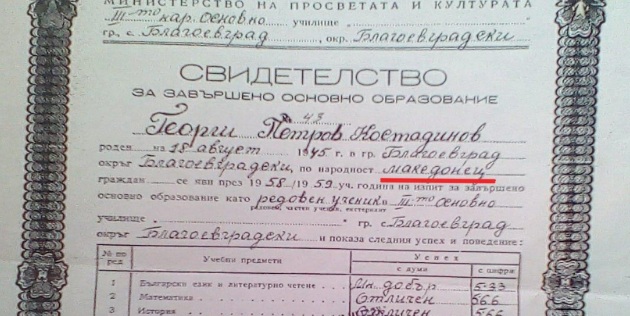 МИНИСТЕРСТВО НА ПРОСВЕТАТА И КУЛТУРАТА
III-то кар. Основно училище
гр., с. Благоевград, окр. Благоевградски
СВИДЕТЕЛСТВО
ЗА ЗАВЪРШЕНО ОСНОВНО ОБРАЗОВАНИЕ
№ 43
Георги Петров Костадинов
роден на 18 август 1945 г. в гр. Благоевград
окръг Благоевградски, по народност македонец
граждан се яви през 1958/1959 уч. година на изпит за завършено
основно образование като редовен ученик в III-то основно
редовен, частен ученик, екстернат
училище гр. с. Благоевград
окръг Благоевградски и показа следния успех и поведение:
№ по ред Учебни предмети Успех
с думи с цифри
1 Български език и литературно четене Мн. добър 5·33
2 Математика Отличен 5·66
3 История Отличен 5·66